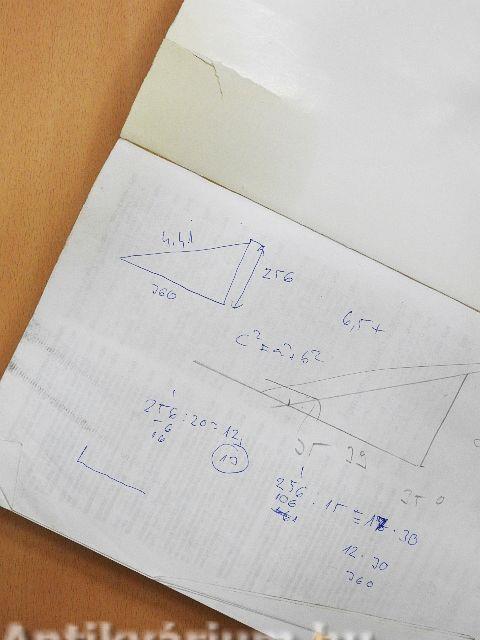 4,41
256
360
6,5+
c²=a²+b²
256:20=12,
56
16
13
35 39
35°
256:15=17.30
106
12.30
360
Antikvárium.hu